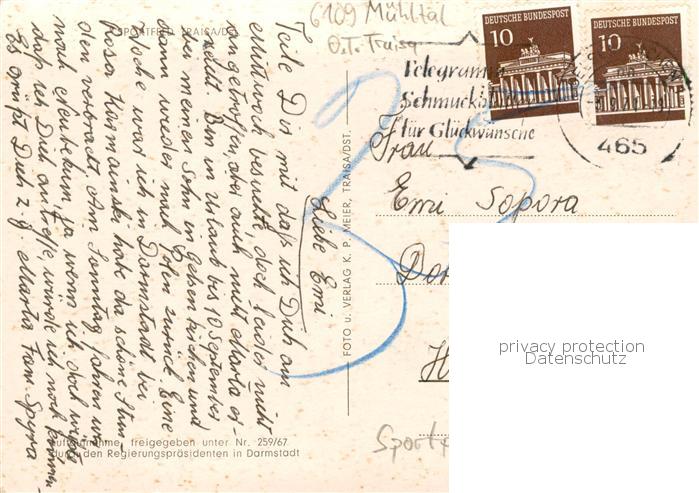 SPORTFELD TRAISA/DST.
6109 Mühltal
O.T. Traisa
DEUTSCHE BUNDESPOST
10
DEUTSCHE BUNDESPOST
10
Telegramm
Schmuck
für Glückwünsche
465
Frau
Emi Sopora
Dor
H
Sport
FOTO u. VERLAG K. P. MEIER, TRAISA/DST.
Liebe Emi
Teile Dir mit daß ich Dich am
Mittwoch besuchte, doch leider nicht
angetroffen, aber auch nicht Marta er-
reicht. Bin in Urlaub bis 10 September
bei meinen Sohn in Gelsenkirchen und
dann wieder mal Peter zurück. Eine
Woche war ich in Darmstadt bei
habe da schöne Stun-
den verbracht. Am Sonntag fahren wir
nach Neubekum, ja wenn ich doch wüßte
daß ich Dich antreffe, würde ich noch kommen
Es grüßt Dich z. J. Marta Fam. Spyra
Luftaufnahme, freigegeben unter Nr. 259/67
durch den Regierungspräsidenten in Darmstadt
privacy protection
Datenschutz